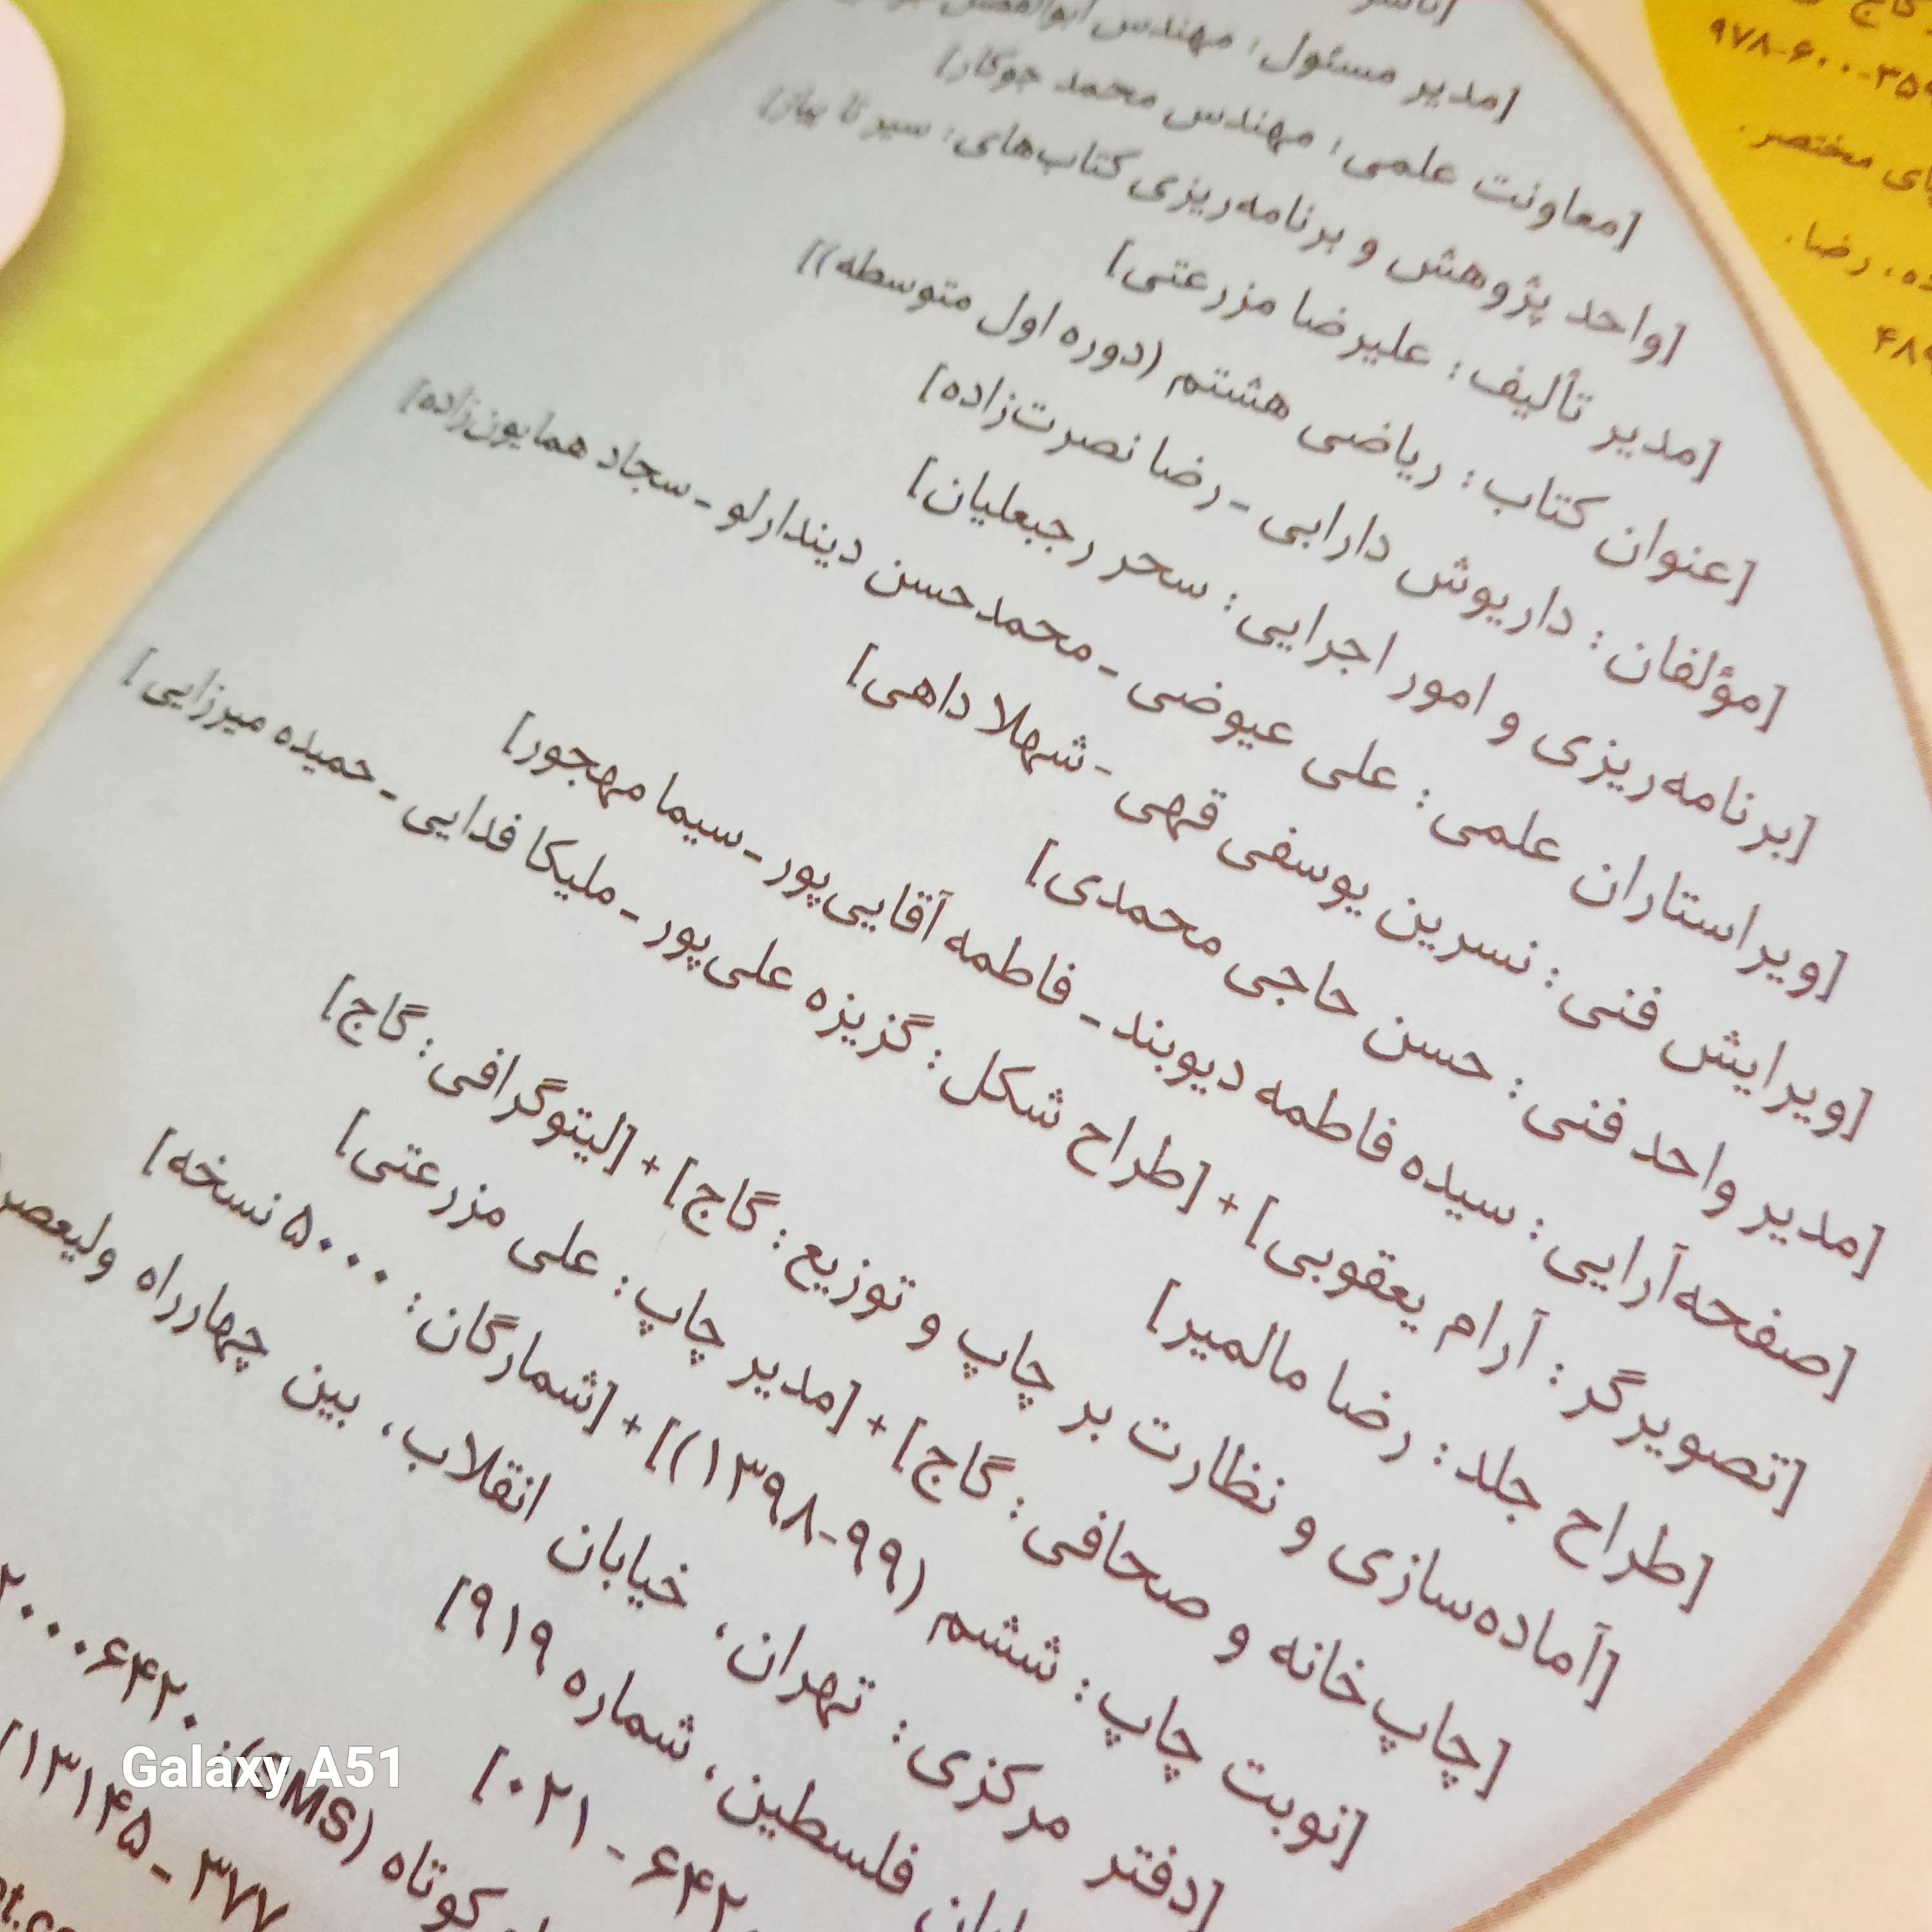 [مدیر مسئول: مهندس
[معاونت علمی: مهندس محمد جوکار]
[واحد پژوهش و برنامه‌ریزی کتاب‌های: سیر تا پیاز]
[مدیر تألیف: علیرضا مزرعتی]
[عنوان کتاب: ریاضی هشتم (دوره اول متوسطه)]
[مؤلفان: داریوش دارابی - رضا نصرت‌زاده]
[برنامه‌ریزی و امور اجرایی: سحر رجبعلیان]
[ویراستاران علمی: علی عیوضی - محمدحسن دیندارلو - سجاد همایون‌زاده]
[ویرایش فنی: نسرین یوسفی قهی - شهلا داهی]
[مدیر واحد فنی: حسن حاجی محمدی]
[صفحه‌آرایی: سیده فاطمه دیوبند - فاطمه آقایی‌پور - سیما مهجور]
[تصویرگر: آرام یعقوبی] + [طراح شکل: گزیزه علی‌پور - ملیکا فدایی - حمیده میرزایی]
[طراح جلد: رضا مالمیر]
[آماده‌سازی و نظارت بر چاپ و توزیع: گاج] + [لیتوگرافی: گاج]
[چاپ‌خانه و صحافی: گاج] + [مدیر چاپ: علی مزرعتی]
[نوبت چاپ: ششم (۹۹-۱۳۹۸)] + [شمارگان: ۵۰۰۰ نسخه]
[دفتر مرکزی: تهران، خیابان انقلاب، بین چهارراه ولیعصر
فلسطین، شماره ۹۱۹]
۰۲۱ - ۶۴۲
کوتاه (SMS):
۳۷۷ - ۱۳۱۴۵]
۹۷۸-۶۰۰-۳۵۹
مختصر.
رضا.
۴۸۹
Galaxy A51